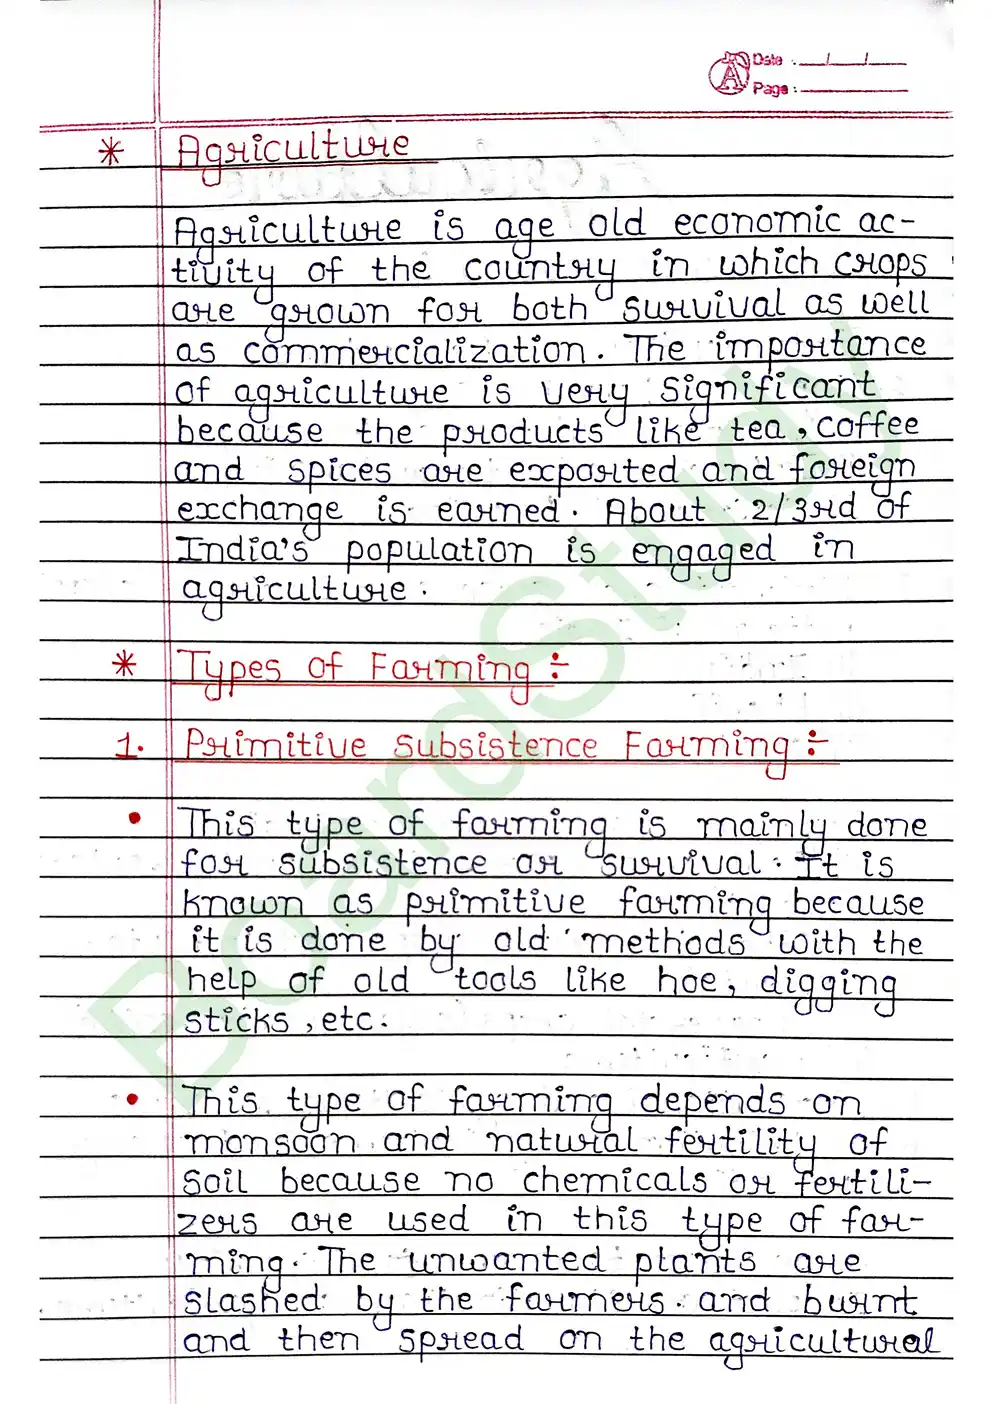 Date : __/__/__
Page :
* Agriculture
Agriculture is age old economic ac-
tivity of the country in which crops
are grown for both survival as well
as commercialization. The importance
of agriculture is very significant
because the products like tea, coffee
and spices are exported and foreign
exchange is earned. About 2/3rd of
India's population is engaged in
agriculture.
* Types of Farming :-
1. Primitive Subsistence Farming :-
• This type of farming is mainly done
for subsistence or survival. It is
known as primitive farming because
it is done by old methods with the
help of old tools like hoe, digging
sticks, etc.
• This type of farming depends on
monsoon and natural fertility of
soil because no chemicals or fertili-
zers are used in this type of far-
ming. The unwanted plants are
slashed by the farmers. and burnt
and then spread on the agricultural
BoardStudy